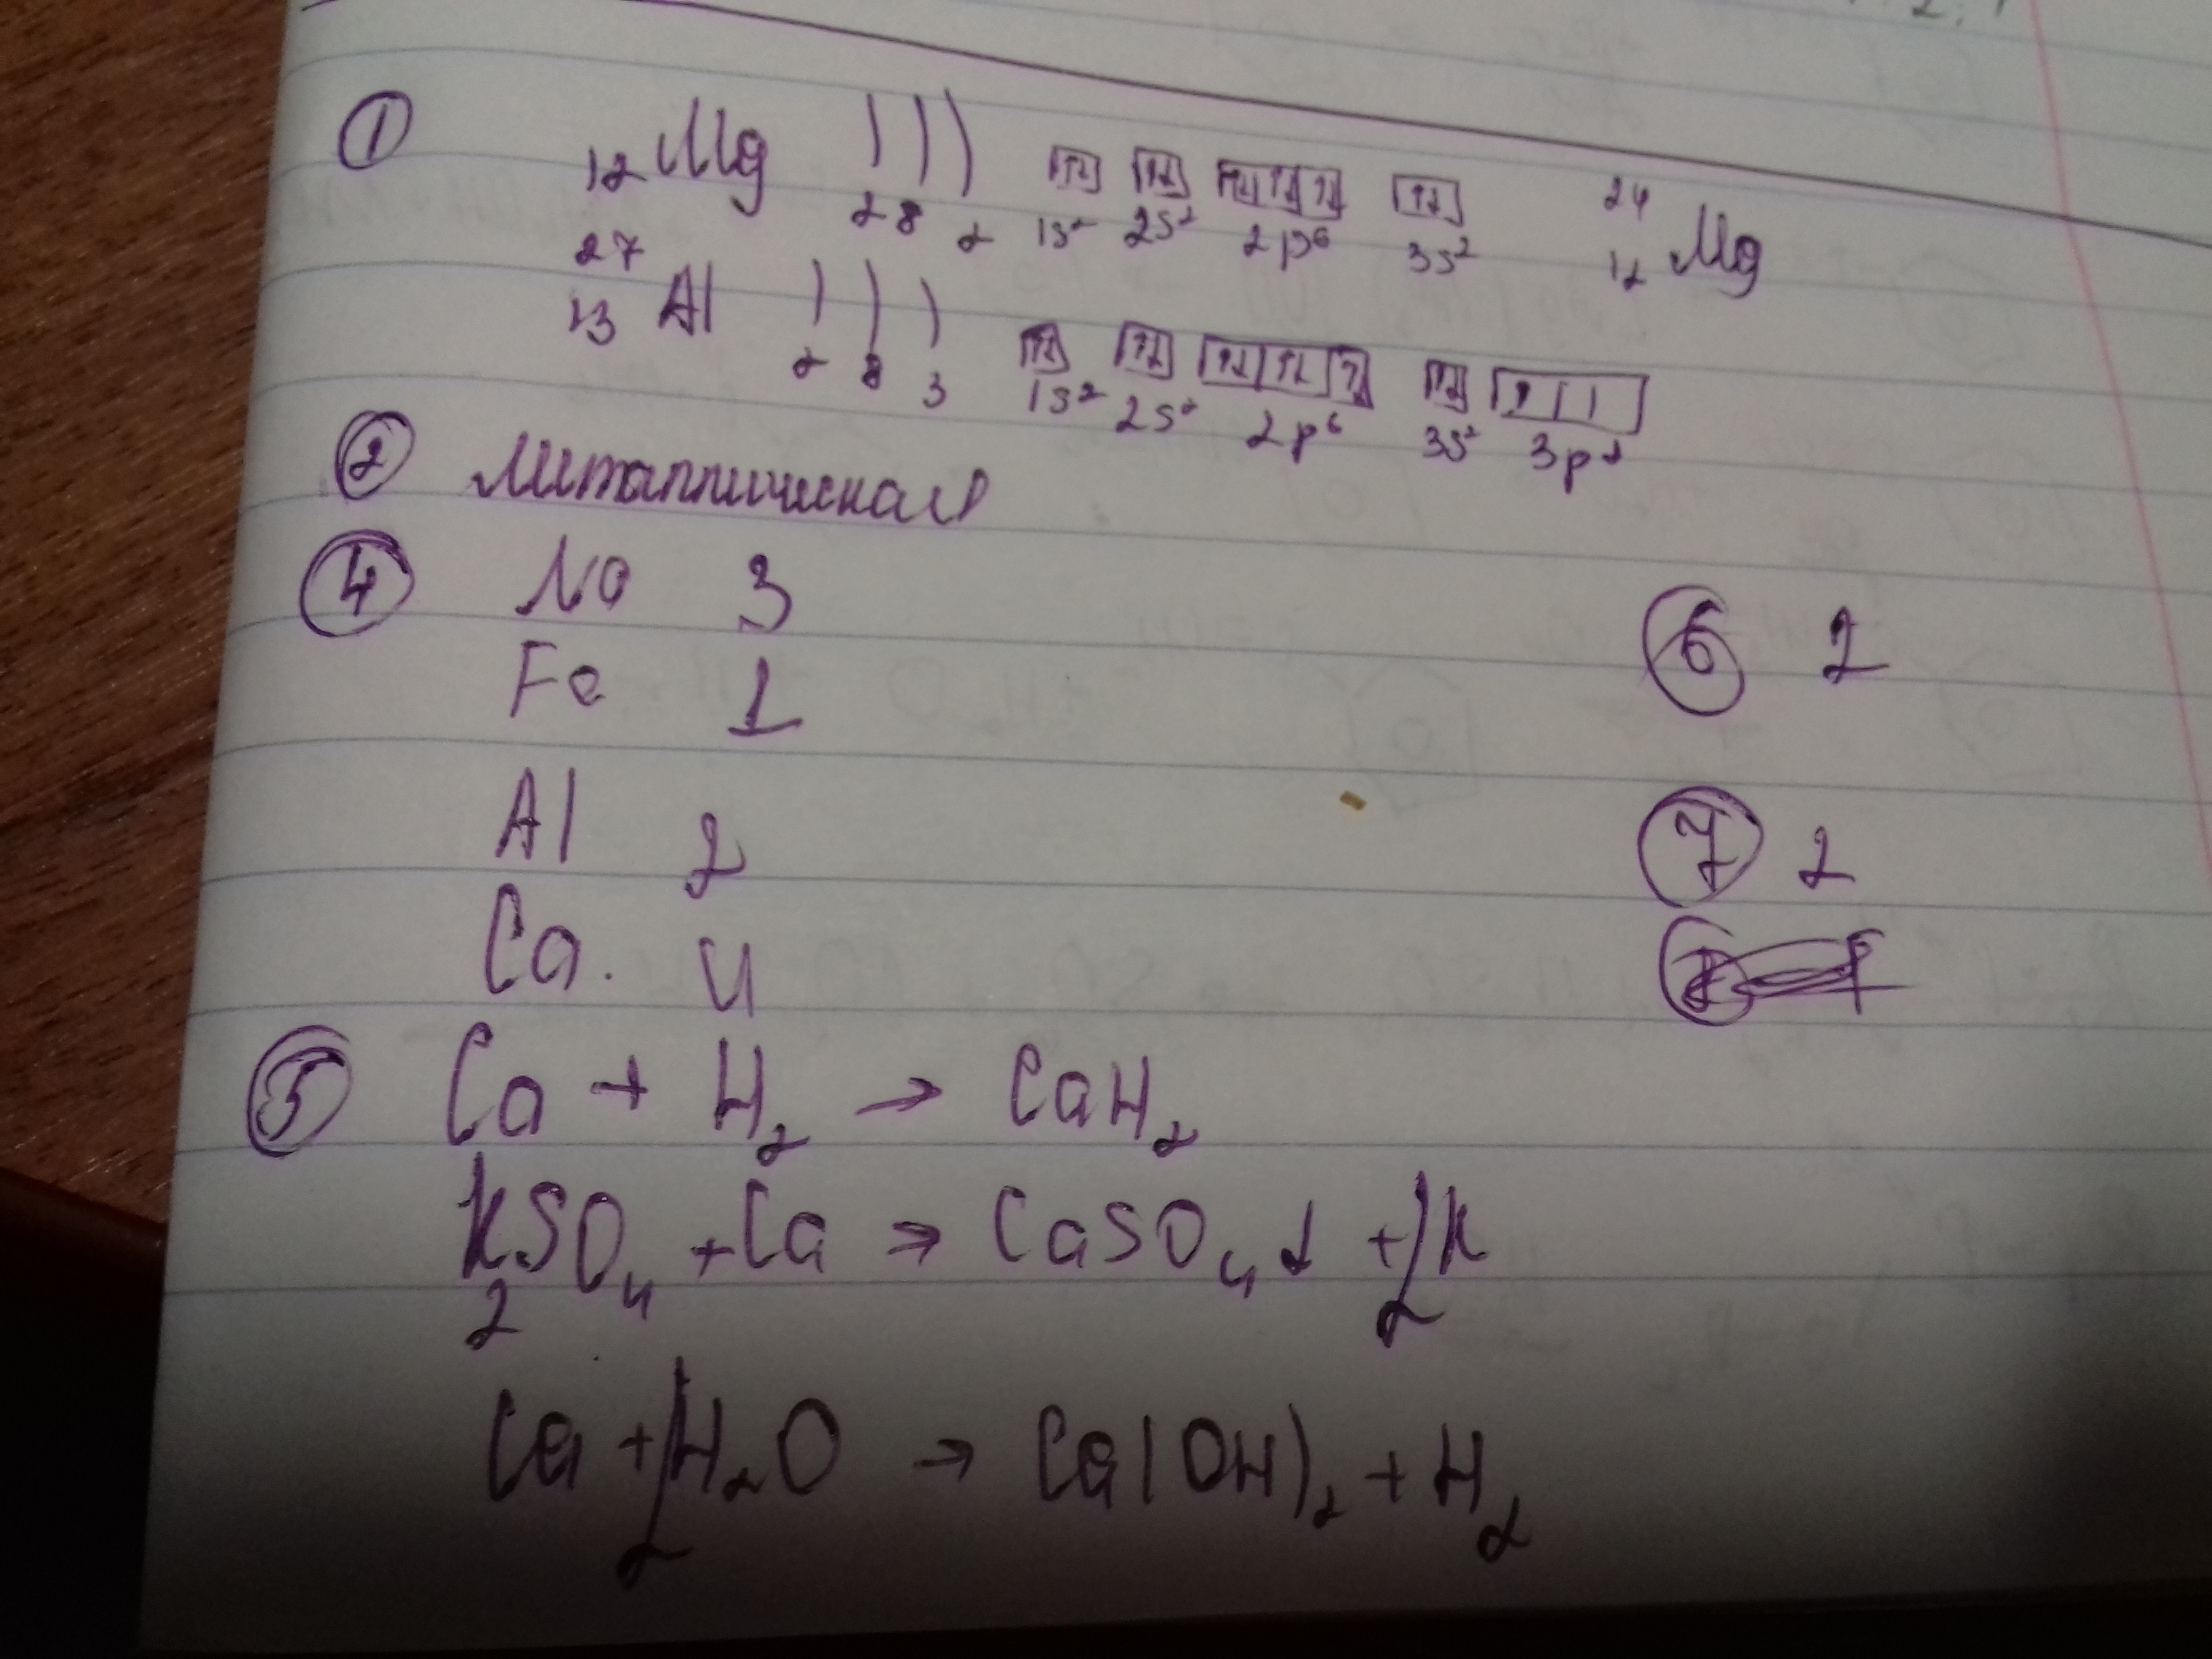 ① 12 Mg ) ) ) 2 8 2 1s² 2s² 2p⁶ 3s² 24 12 Mg
27 13 Al ) ) ) 2 8 3 1s² 2s² 2p⁶ 3s² 3p¹
② Металлическая
④ Na 3
Fe 1
Al 2
Ca. 4
⑥ 2
⑦ 2
⑤ Ca + H₂ → CaH₂
K₂SO₄ + Ca → CaSO₄↓ + 2K
Ca + 2H₂O → Ca(OH)₂ + H₂